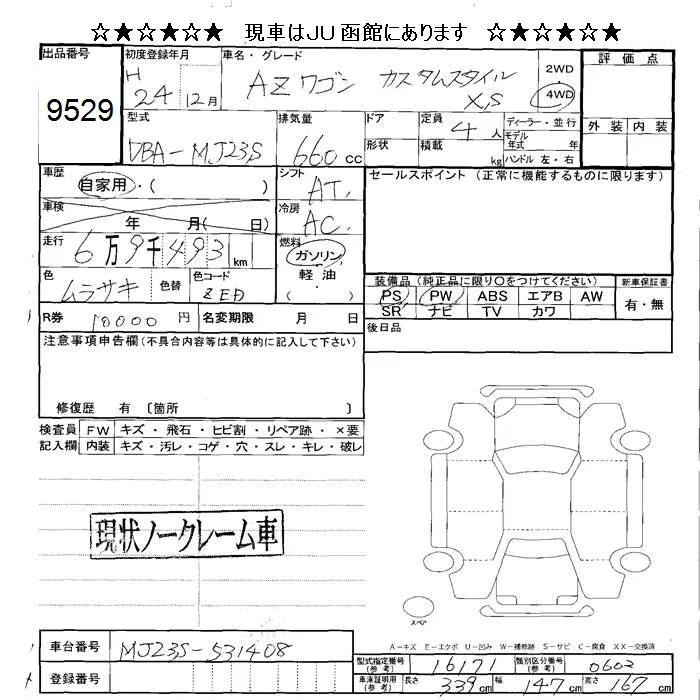 ☆★☆★☆★ 現車はJU函館にあります ☆★☆★☆★
出品番号 初度登録年月 車名・グレード 評価点
9529 H 24 12月 AZワゴン カスタムスタイル XS 2WD 4WD
外装 内装
型式 排気量 ドア 定員 ディーラー・並行
DBA-MJ23S 660 cc 4人 モデル年式 年
形状 積載 kg ハンドル 左・右
車歴 自家用・( ) シフト AT セールスポイント(正常に機能するものに限ります)
車検 年 月( 日) 冷房 AC
走行 6万9千493km 燃料 ガソリン
軽油
( )
色 ムラサキ 色替 色コード ZED 装備品(純正品に限り○をつけてください) 新車保証書
PS PW ABS エアB AW 有・無
SR ナビ TV カワ
R券 10000円 名変期限 月 日 後日品
注意事項申告欄(不具合内容等は具体的に記入して下さい)
修復歴 有 〔箇所 〕
検査員 FW キズ・飛石・ヒビ割・リペア跡・×要
記入欄 内装 キズ・汚レ・コゲ・穴・スレ・キレ・破レ
現状ノークレーム車
スペア
A-キズ E-エクボ U-凹み W-補修跡 S-サビ C-腐食 XX-交換済
車台番号 MJ23S-531408
型式指定番号(参考) 16171 類別区分番号(参考) 0602
登録番号 車庫証明用(参考) 長さ 339cm 幅 147cm 高さ 167cm